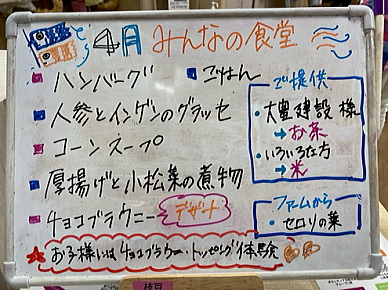 4月 みんなの食堂
ハンバーグ
ごはん
人参とインゲンのグラッセ
コーンスープ
厚揚げと小松菜の煮物
チョコブラウニー デザート
ご提供
・大豊建設 様
→お茶
・いろいろな方
→米
ファームから
・セロリの葉
★お子様には チョコブラウニー トッピング体験
枝豆